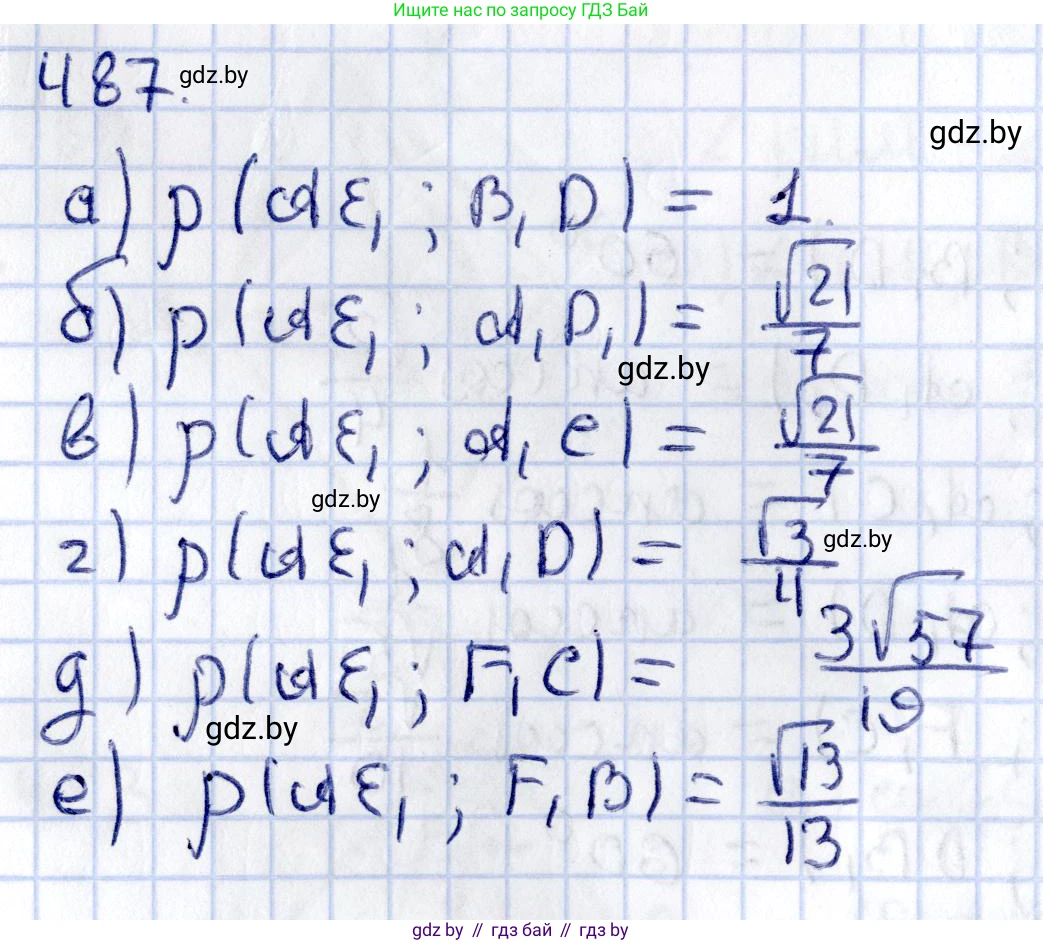 Ищите нас по запросу ГДЗ Бай
487. gdz.by
gdz.by
а) ρ(AE₁; B₁D) = 1.
б) ρ(AE₁; A₁D₁) = √21/7
gdz.by
в) ρ(AE₁; A₁C) = √21/7
gdz.by
г) ρ(AE₁; A₁D) = √3/4
gdz.by
д) ρ(AE₁; F₁C) = 3√57/19
gdz.by
е) ρ(AE₁; F₁B) = √13/13
gdz.by // гдз бай // гдз by